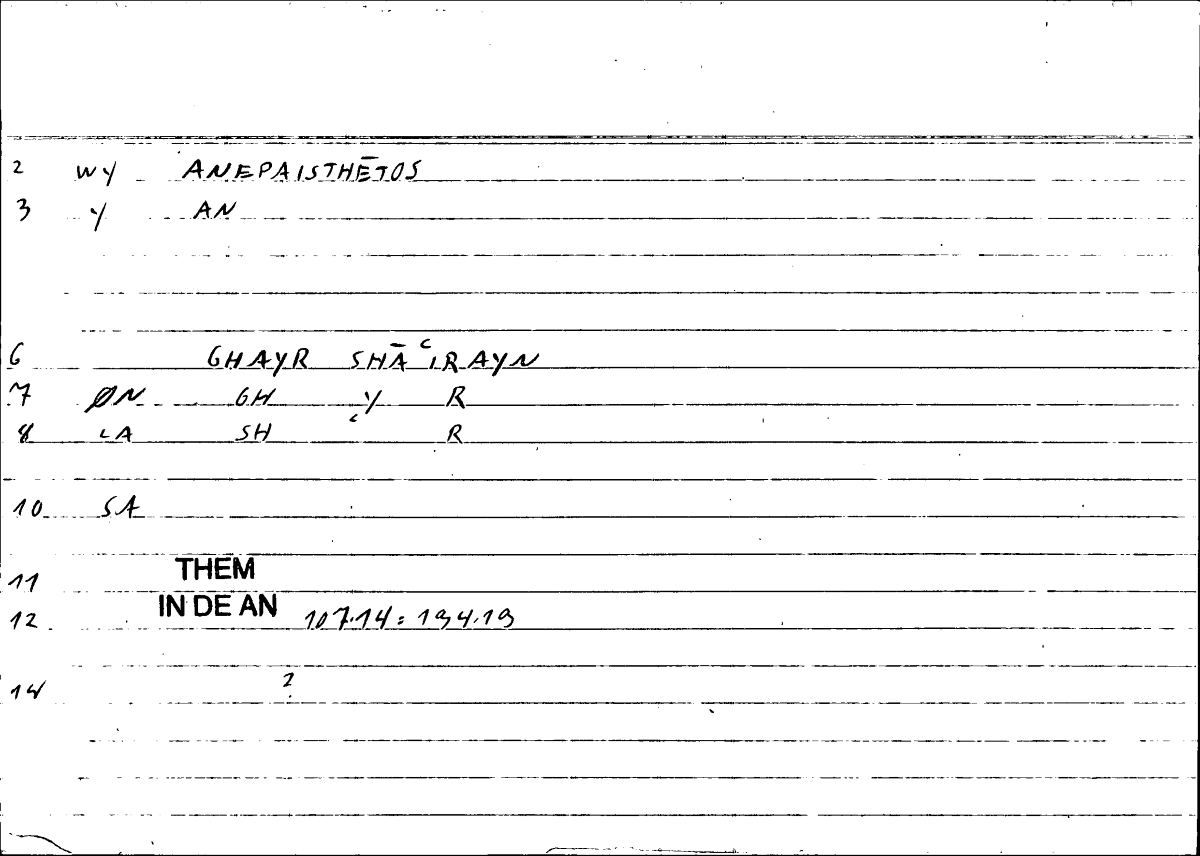 2 WY ANEPAISTHĒTOS
3 Y AN
6 GHAYR SHĀʿIRAYN
7 ØN GH Y R
8 LA SH ʿ R
10 SA
11 THEM
12 IN DE AN 107.14 = 194.19
14 2